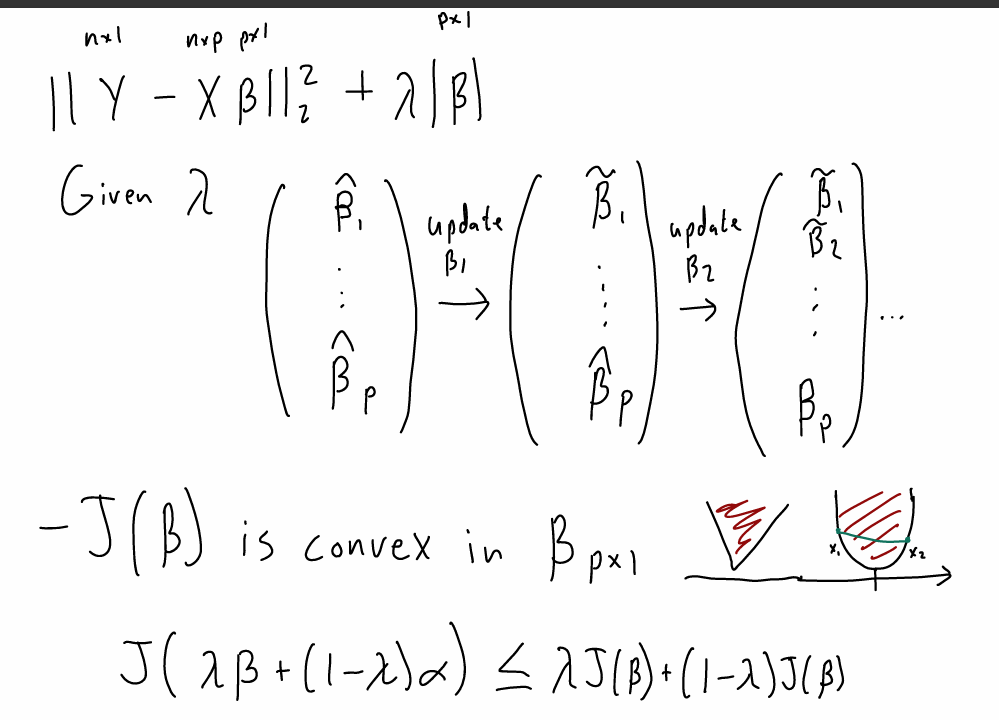 n×1 n×p p×1 p×1
|| Y - X β ||₂² + λ|β|
Given λ ( β̂₁ ⋮ β̂p ) update β₁ → ( β̃₁ ⋮ β̂p ) update β₂ → ( β̃₁ β̃₂ ⋮ βp ) ...
- J(β) is convex in β p×1
x₁ x₂
J( λβ + (1-λ)α ) ≤ λJ(β) + (1-λ)J(β)